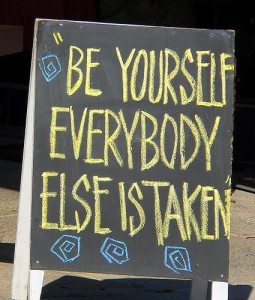 "BE YOURSELF
EVERYBODY
ELSE IS TAKEN"